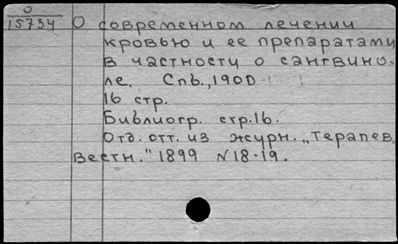 О
15734
О современном лечении
кровью и ее препаратами
в частности о сангвино-
ле. Спb., 1900
16 стр.
Библиогр. стр.16.
Отд. отт. из журн. „Терапев.
Вестн." 1899 N18-19.